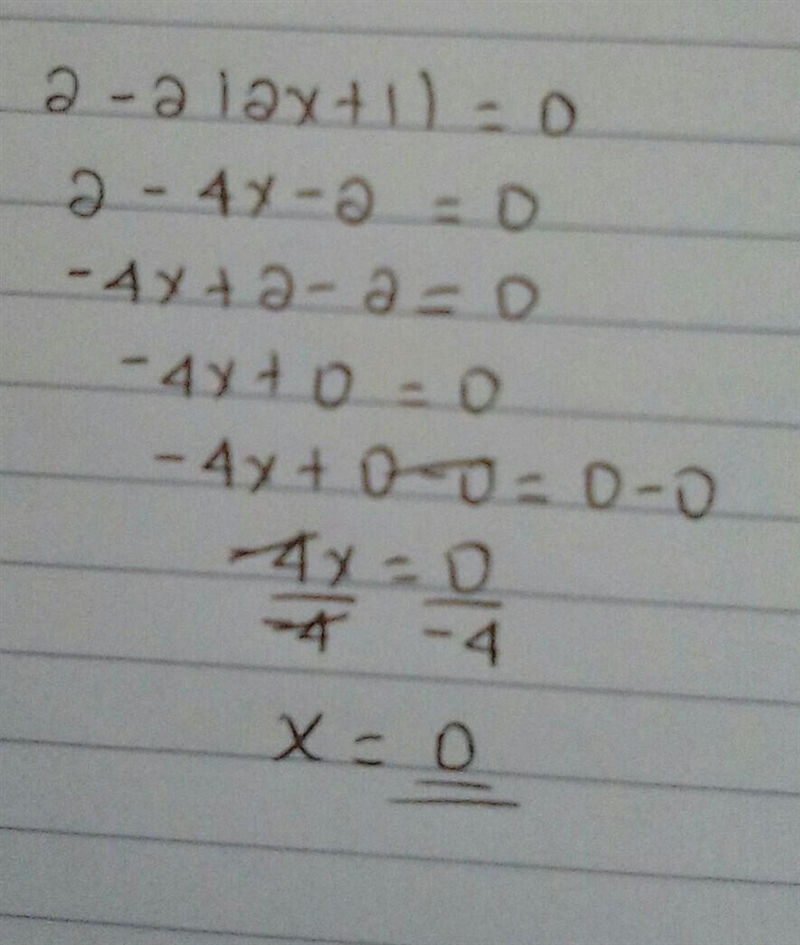 2 - 2(2x+1) = 0
2 - 4x - 2 = 0
-4x + 2 - 2 = 0
-4x + 0 = 0
-4x + 0 - 0 = 0 - 0
-4x = 0
-4 -4
x = 0